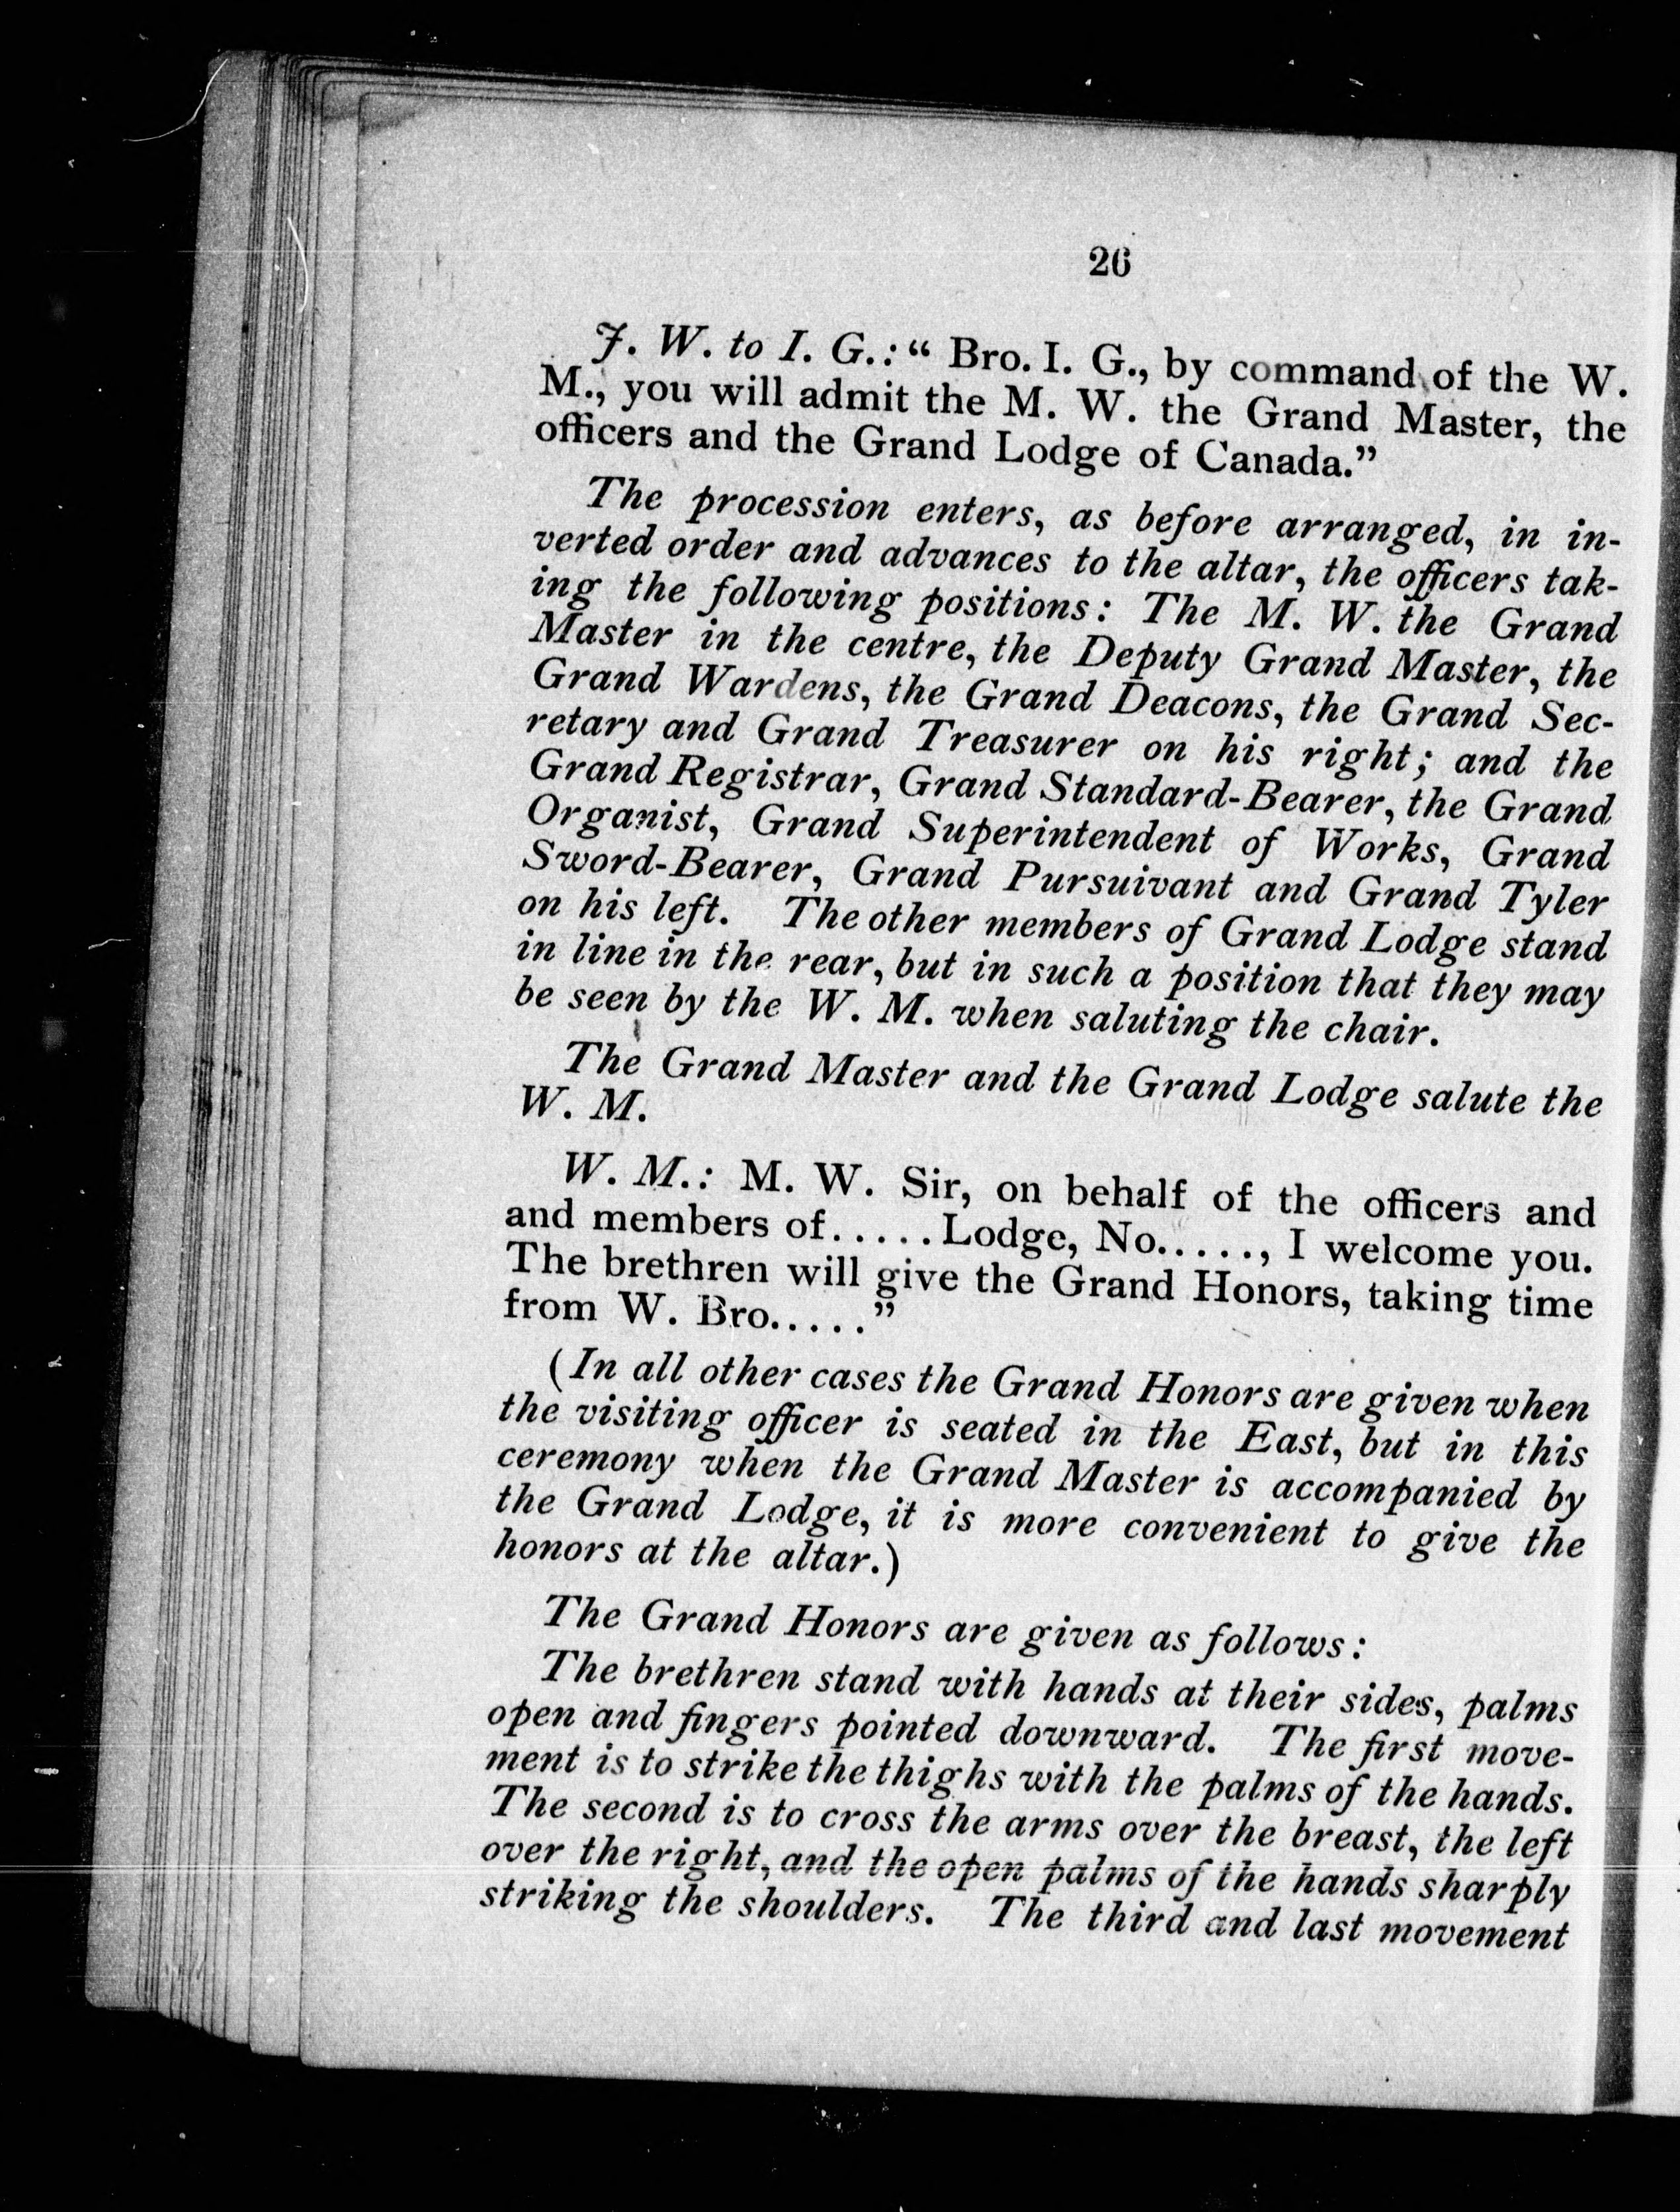 26
J. W. to I. G.: “ Bro. I. G., by command of the W.
M., you will admit the M. W. the Grand Master, the
officers and the Grand Lodge of Canada.”
The procession enters, as before arranged, in in-
verted order and advances to the altar, the officers tak-
ing the following positions: The M. W. the Grand
Master in the centre, the Deputy Grand Master, the
Grand Wardens, the Grand Deacons, the Grand Sec-
retary and Grand Treasurer on his right; and the
Grand Registrar, Grand Standard-Bearer, the Grand
Organist, Grand Superintendent of Works, Grand
Sword-Bearer, Grand Pursuivant and Grand Tyler
on his left. The other members of Grand Lodge stand
in line in the rear, but in such a position that they may
be seen by the W. M. when saluting the chair.
The Grand Master and the Grand Lodge salute the
W. M.
W. M.: M. W. Sir, on behalf of the officers and
and members of.....Lodge, No....., I welcome you.
The brethren will give the Grand Honors, taking time
from W. Bro.....”
(In all other cases the Grand Honors are given when
the visiting officer is seated in the East, but in this
ceremony when the Grand Master is accompanied by
the Grand Lodge, it is more convenient to give the
honors at the altar.)
The Grand Honors are given as follows:
The brethren stand with hands at their sides, palms
open and fingers pointed downward. The first move-
ment is to strike the thighs with the palms of the hands.
The second is to cross the arms over the breast, the left
over the right, and the open palms of the hands sharply
striking the shoulders. The third and last movement